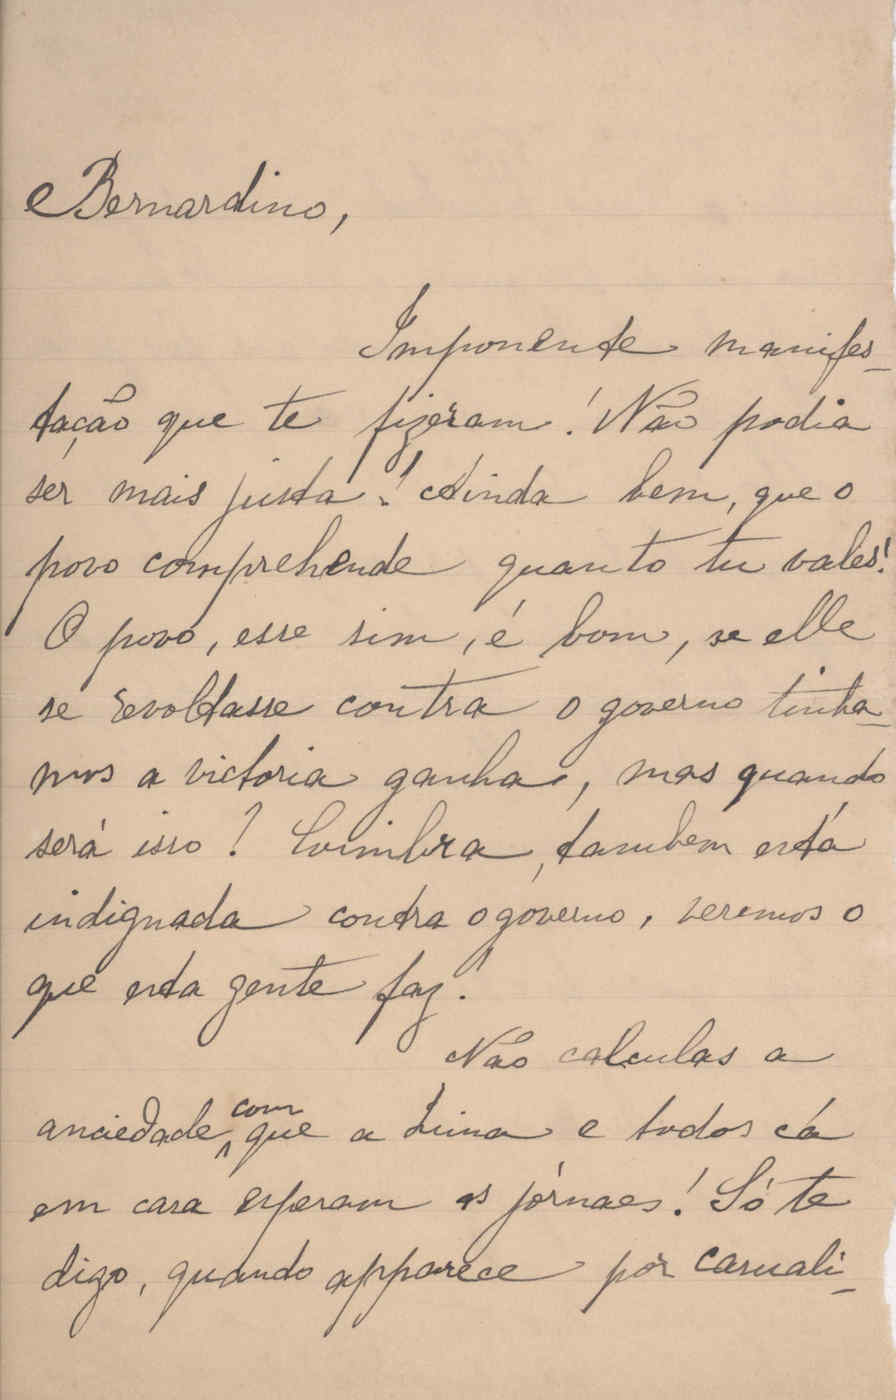 Bernardino,
Imponente manifes-
tação que te fizeram! Não podia
ser mais justa! Ainda bem, que o
povo comprehende quanto tu vales!
O povo, esse sim, é bom, se elle
se revoltasse contra o governo tinha-
mos a victoria ganha, mas quando
será isso? Coimbra, tambem está
indignada contra o governo, veremos o
que esta gente faz!
Não calculas a
anciedade com que a Lima e todos cá
em casa esperam os jórnaes! Só te
digo, quando apparece por casuali-